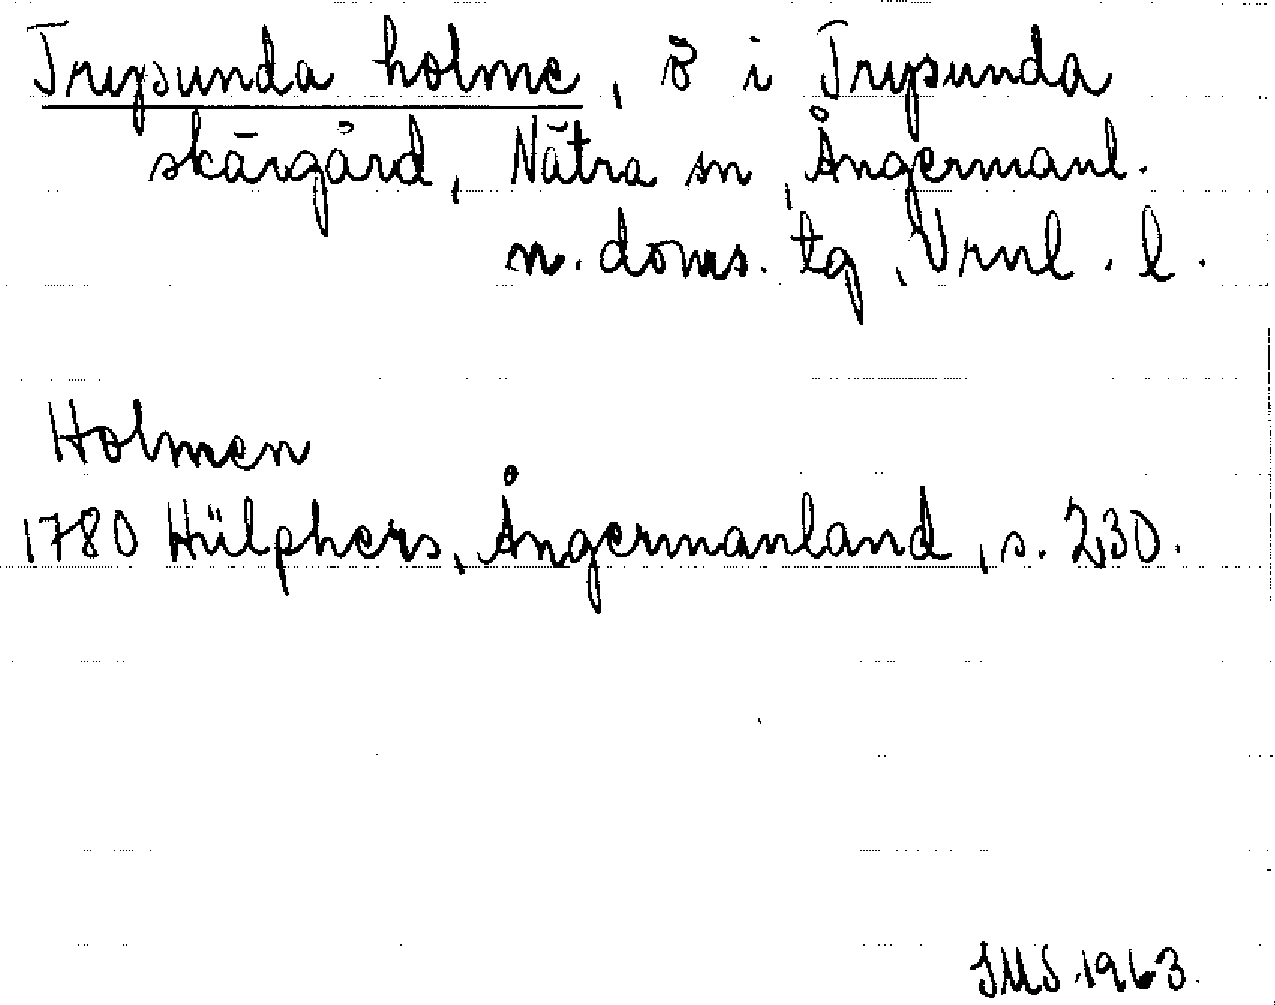 Trysunda holme, ö i Trysunda
skärgård, Nätra sn, Ångermanl.
n. doms. tg, Vrnl. l.
Holmen
1780 Hülphers, Ångermanland, s. 230.
SMS 1963.